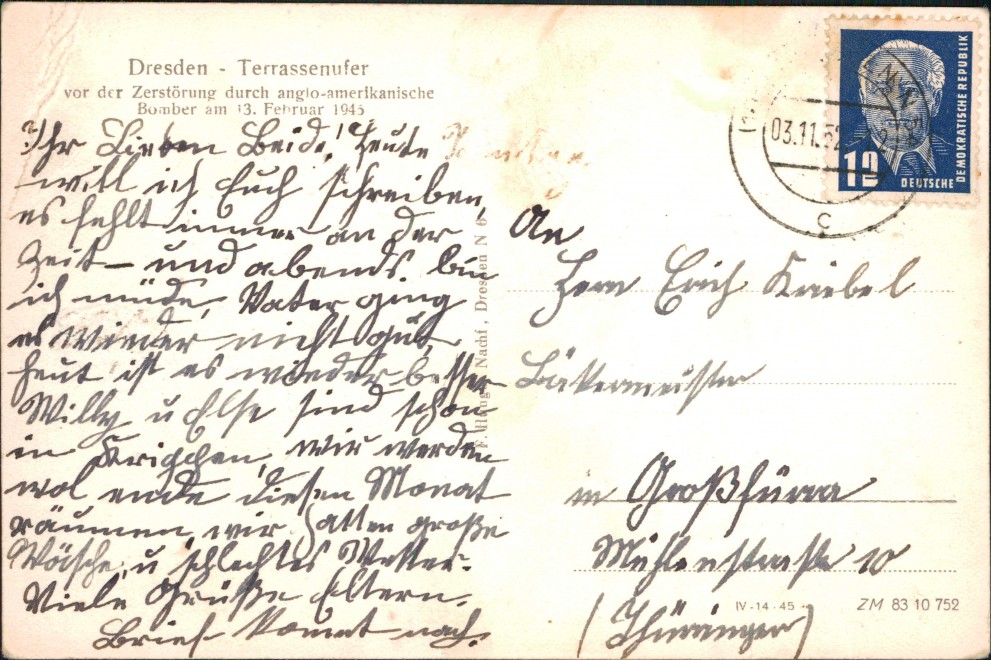 Dresden - Terrassenufer
vor der Zerstörung durch anglo-amerikanische
Bomber am 13. Februar 1945
Ihr Lieben Beide! Heute
will ich Euch schreiben,
es fehlt immer an der
Zeit – und abends bin
ich müde, Vater ging
es wieder nicht gut,
heut ist es wieder besser
Willy u Else sind schon
in
wir werden
wol ende diesen Monat
räumen, wir hatten große
Wäsche, u schlechtes Wetter.
Viele Grüße Eltern.
Brief kommt nach.
Nachf., Dresden N 6
DEUTSCHE
DEMOKRATISCHE REPUBLIK
12
03.11.52
c
An
Herrn Erich Kriebel
Bäckermeister
in Großfurra
Mühlenstraße 10
(Thüringen)
IV-14-45
ZM 83 10 752